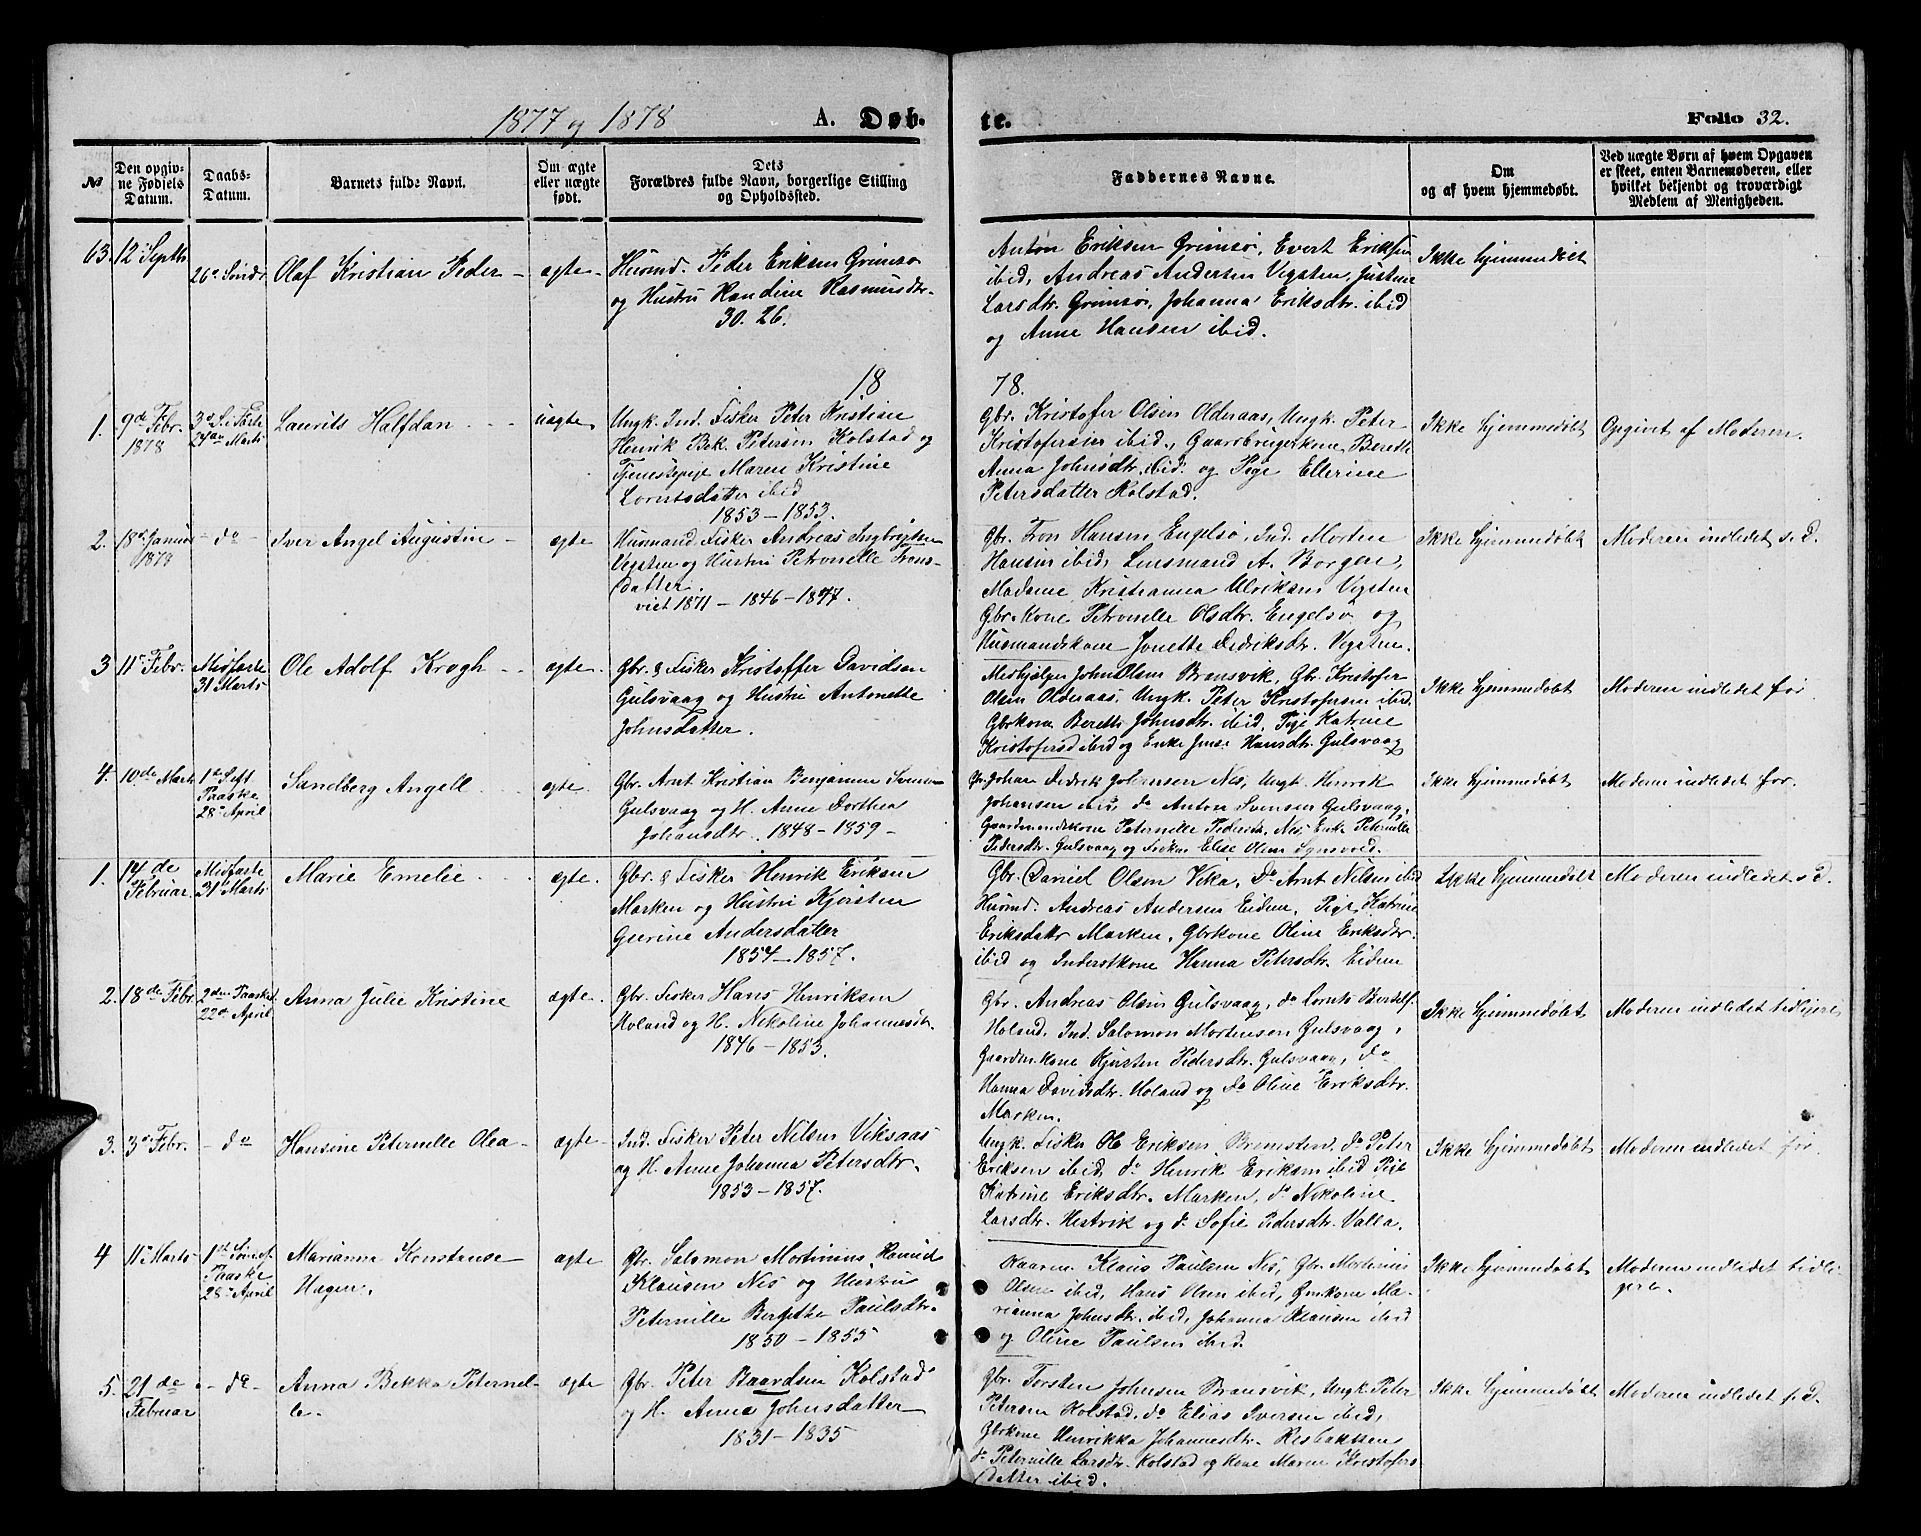 1877 og 1878 A. Døb-
te. Folio 32.
No
Den opgiv-
ne Fødsels
Datum.
Daabs-
Datum.
Barnets fulde Navn.
Om ægte
eller uægte
født.
Dets
Forældres fulde Navn, borgerlige Stilling
og Opholdssted.
Faddernes Navne.
Om
og af hvem hjemmedøbt.
Ved uægte Børn af hvem Opgaven
er skeet, enten Barnemoderen, eller
hvilket bekjendt og troværdigt
Medlem af Menigheden.
63. 12 Septb
26de Sindr
Olaf Kristian Peder
ægte
Husmd. Peder Eriksen Grimsø
og Hustru Randine Rasmusdtr.
30. 26.
Anton Eriksen Grimsø, Evert Eriksen
ibid, Andreas Andersen Vegsten, Justine
Larsdtr. Grimsø, Johanna Eriksdtr. ibid
og Anne Hansen ibid.
Ikke hjemmedøbt
18 78.
1. 9de Febr.
1878
3die S. i Faste
24de Marts
Laurits Halfdan
uægte
Ungk. Ind. Fisker Peter Kristian
Henrik Bek. Petersen Kolstad og
Tjenestepige Maren Kristine
Lorntsdatter ibid
1853 - 1853.
Gbr. Kristofer Olsen Olderaas, Ungk. Peter
Kristofersen ibid, Gaardbrugerkone Berethe
Anna Johnsdtr. ibid. og Pige Ellerine
Petersdatter Kolstad.
Ikke hjemmedøbt
Opgivet af Moderen.
2. 18de Januar
1878
- do -
Iver Angel Augustin
ægte
Husmand Fisker Andreas Ingbrigtsen
Vegsten og Hustru Petronelle
datter.
viet 1871 - 1846 - 1847.
Gbr. Hansen Engelsø, Ind. Morten
Hansen ibid, Lensmand A. Borgen,
Madame Kristianna Ulriksen Vegsten
Gbr. Kone Petronelle Olsdtr. Engelsø og
Husmandskone Jonette Dedriksdtr. Vegsten.
Ikke hjemmedøbt
Moderen indledet s. D.
3 11te Febr.
Midfaste
31 Marts
Ole Adolf Krogh
ægte
Gbr. & Fisker Kristoffer Davidsen
Gulsvaag og Hustru Antonette
Johnsdatter.
Medhjælper John Olsen Brønsvik, Gbr. Kristofer
Olsen Olderaas, Ungk. Peter Kristofersen ibid.
Gbrkone Berethe Johnsdtr. ibid, Pige Katrine
Kristofersd ibid og Enke Hansdtr. Gulsvaag
Ikke hjemmedøbt
Moderen indledet før
4. 10de Marts
1ste S. eft
Paaske
28de April
Sandberg Angell
ægte
Gbr. Arnt Kristian Benjaminsen
Gulsvaag og H. Anne Dorthea
Johansdtr. 1848 - 1859 -
Gbr. Johan Dedrik Johansen Nes, Ungk. Henrik
Johansen ibid, do Anton Svensen Gulsvaag,
Gaardmandskone Peternille Pedersdtr. Nes, Enke Peternille
Pedersdtr. Gulsvaag og Frøken Elise Olsen
Ikke hjemmedøbt
Moderen indledet før.
1. 14de
Februar
Midfaste
31 Marts
Marie Emelie
ægte.
Gbr. & Fisker Henrik Eriksen
Marken og Hustru Kjersten
Gurine Andersdatter
1854 - 1857.
Gbr. Daniel Olsen Vika, Do Arnt Nilsen ibid
Husmd. Andreas Andersen Eidem, Pige Katrine
Eriksdatr Marken, Gbrkone Oline Eriksdtr.
ibid og Inderstkone Hanna Petersdtr. Eidem
Ikke hjemmedøbt
Moderen indledet s D.
2. 18de Febr.
2den Paaskd.
22de April
Anna Julie Kristine
ægte
Gbr. Fisker Hans Henriksen
Holand og H. Nikoline Johannesdtr.
1846 - 1853.
Gbr. Andreas Olsen Gulsvaag, do Lornts
Holand, Ind. Salomon Mortensen Gulsvaag,
Gaardm.kone Kjersten Pedersdtr. Gulsvaag, do
Hanna Davidsdtr. Holand og do Oline Eriksdtr.
Marken.
Ikke hjemmedøbt
Moderen indledet tidligere
3. 3die Febr.
- do
Hansine Peternille Olea
ægte
Ind. Fisker Peter Nilsen Viksaas
og H. Anne Johanna Petersdtr.
1853 - 1857.
Ungk. Fisker Ole Eriksen do Peter
Eriksen ibid, do Henrik Eriksen ibid Pige
Katrine Eriksdtr. Marken, do Nikoline
Larsdtr. Hestvik og do Sofie Pedersdtr. Valla.
Ikke hjemmedøbt
Moderen indledet før
4 11te Marts
1ste Sønd. ef.
Paaske
28de April
Marianna Konstanse
Hagen.
ægte
Gbr. Salomon Mortinius
Klausen Nes og Hustru
Peternille Bergitha Paulsdtr.
1850 - 1855
Klaus Paulsen Nes, Gbr. Mortinius
Olsen ibid, Hans Olsen ibid, Gmkone Ma-
rianna Johnsdtr. ibid, Johanna Klausen ibid
og Oline Paulsen ibid.
Ikke hjemmedøbt
Moderen indledet tidli-
gere.
5. 21de
Februar
- do -
Anna Bekka Peternel-
le.
ægte
Gbr. Peter Baardsen Kolstad
og H. Anne Johnsdatter
1831 - 1835
Gbr. Torsten Johnsen Brønsvik, Ungk. Peter
Petersen Kolstad, do Elias Iversen ibid,
Gbrkone Henrikka Johannesdtr. Resbakken
do Peternille Larsdtr. Kolstad og Kone Maren Kristofers
datter ibid.
Ikke hjemmedøbt
Moderen indledet s. D.